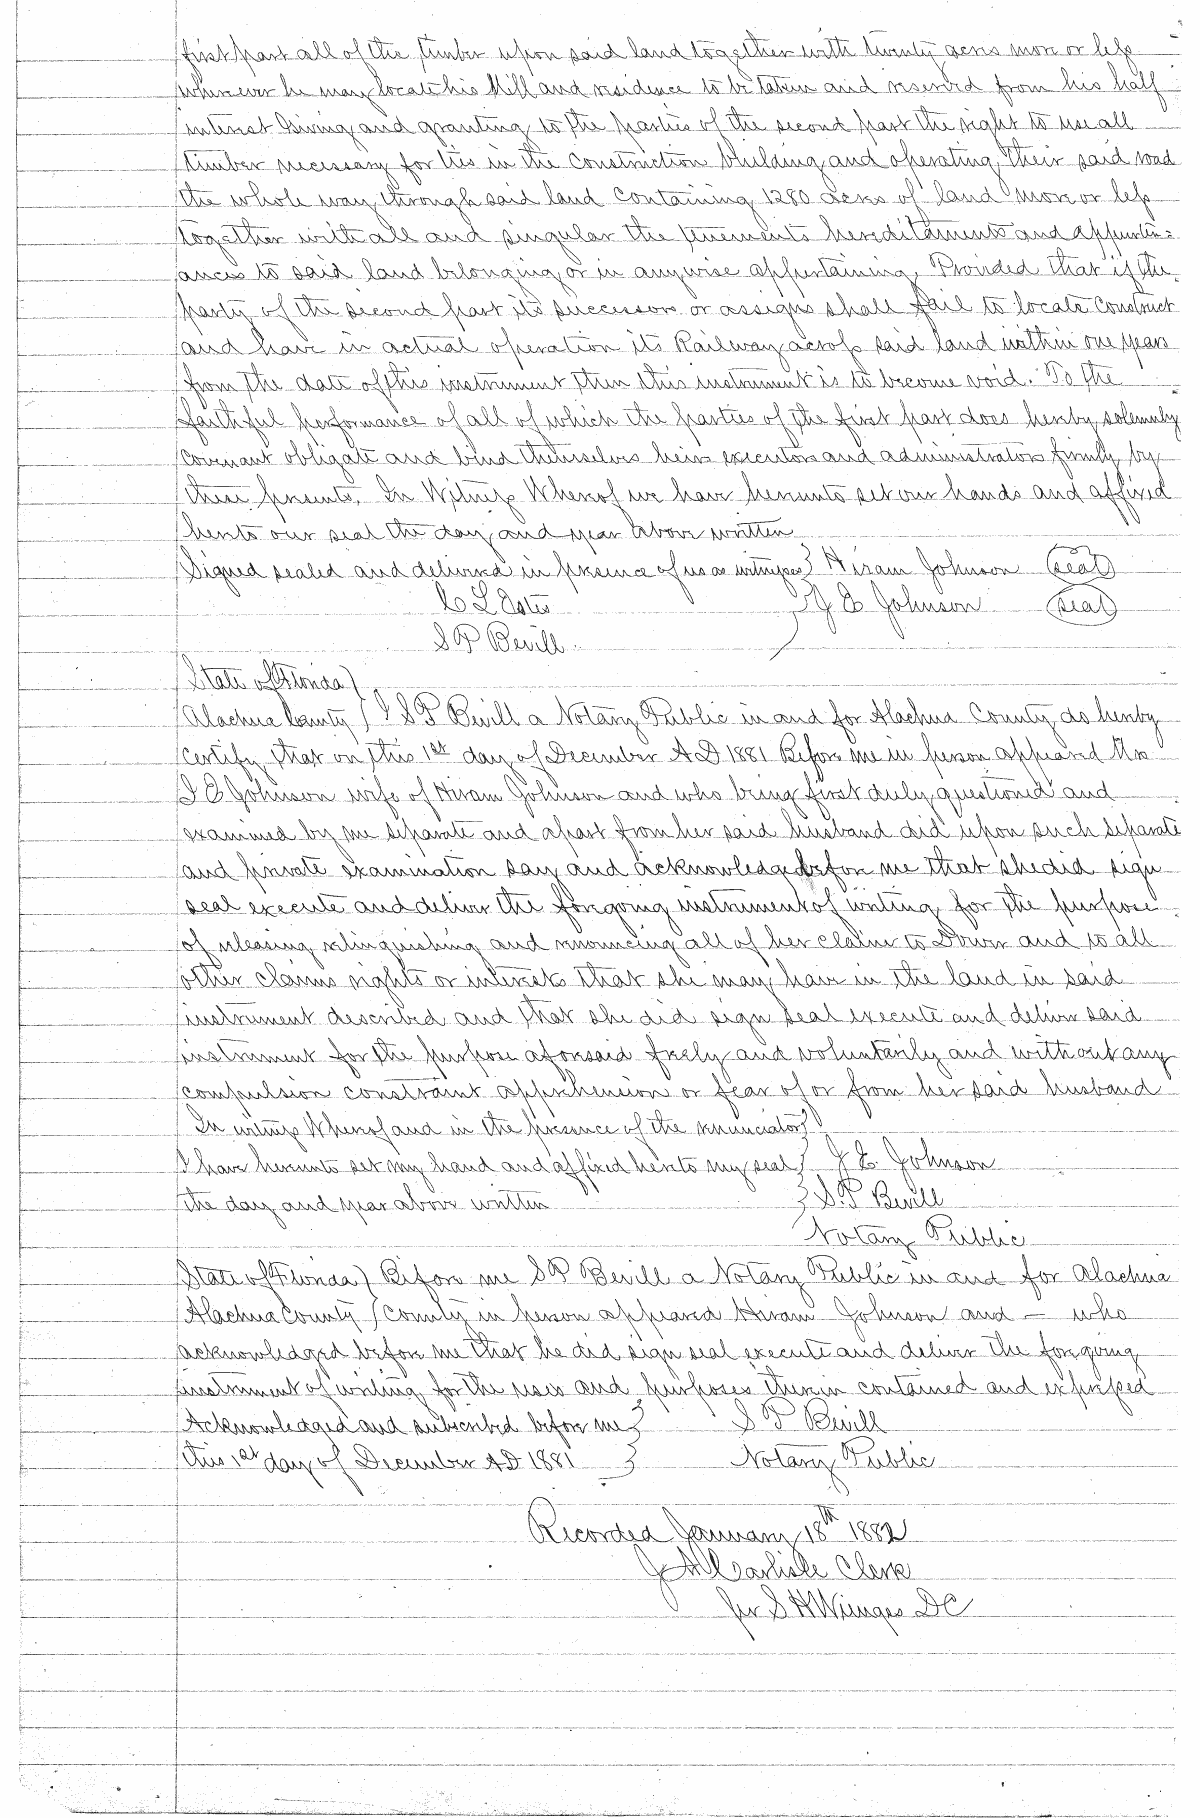 first part all of the timber upon said land together with twenty acres more or less
wherever he may locate his Mill and residence to be taken and reserved from his half
interest Giving and granting to the parties of the second part the right to use all
timber necessary for ties in the construction building and operating their said road
the whole way through said land containing 1280 acres of land more or less
together with all and singular the tenements hereditaments and appurten=
ances to said land belonging or in anywise appertaining. Provided that if the
party of the second part its successors or assigns shall fail to locate construct
and have in actual operation its Railway across said land within one years
from the date of this instrument then this instrument is to become void. To the
faithful performance of all of which the parties of the first part does hereby solemnly
covenant obligate and bind themselves heirs executors and administrators firmly by
these presents. In Witness Whereof we have hereunto set our hands and affixed
hereto our seal the day and year above written
Signed sealed and delivered in presence of us as witnesses } Hiram Johnson (seal)
C L Estes } J E Johnson (seal)
S P Bevill
State of Florida )
Alachua County ) I S P Bevill a Notary Public in and for Alachua County do hereby
certify that on this 1st day of December A D 1881 Before me in person appeared Mrs
J E Johnson wife of Hiram Johnson and who being first duly questioned and
examined by me separate and apart from her said husband did upon such separate
and private examination say and acknowledged before me that she did sign
seal execute and deliver the foregoing instrument of writing for the purpose
of releasing relinquishing and renouncing all of her claim to Dower and to all
other claims rights or interests that she may have in the land in said
instrument described and that she did sign seal execute and deliver said
instrument for the purpose aforesaid freely and voluntarily and without any
compulsion constraint apprehension or fear of or from her said husband
In witness Whereof and in the presence of the renunciator }
I have hereunto set my hand and affixed hereto my seal } J E Johnson
the day and year above written } S. P Bevill
Notary Public
State of Florida ) Before me S P Bevill a Notary Public in and for Alachua
Alachua County ) County in person appeared Hiram Johnson and — who
acknowledged before me that he did sign seal execute and deliver the foregoing
instrument of writing for the uses and purposes therein contained and expressed
Acknowledged and subscribed before me } S P Bevill
this 1st day of December A D 1881 } Notary Public
Recorded January 18th 1882
J A Carlisle Clerk
per S H Wienges DC